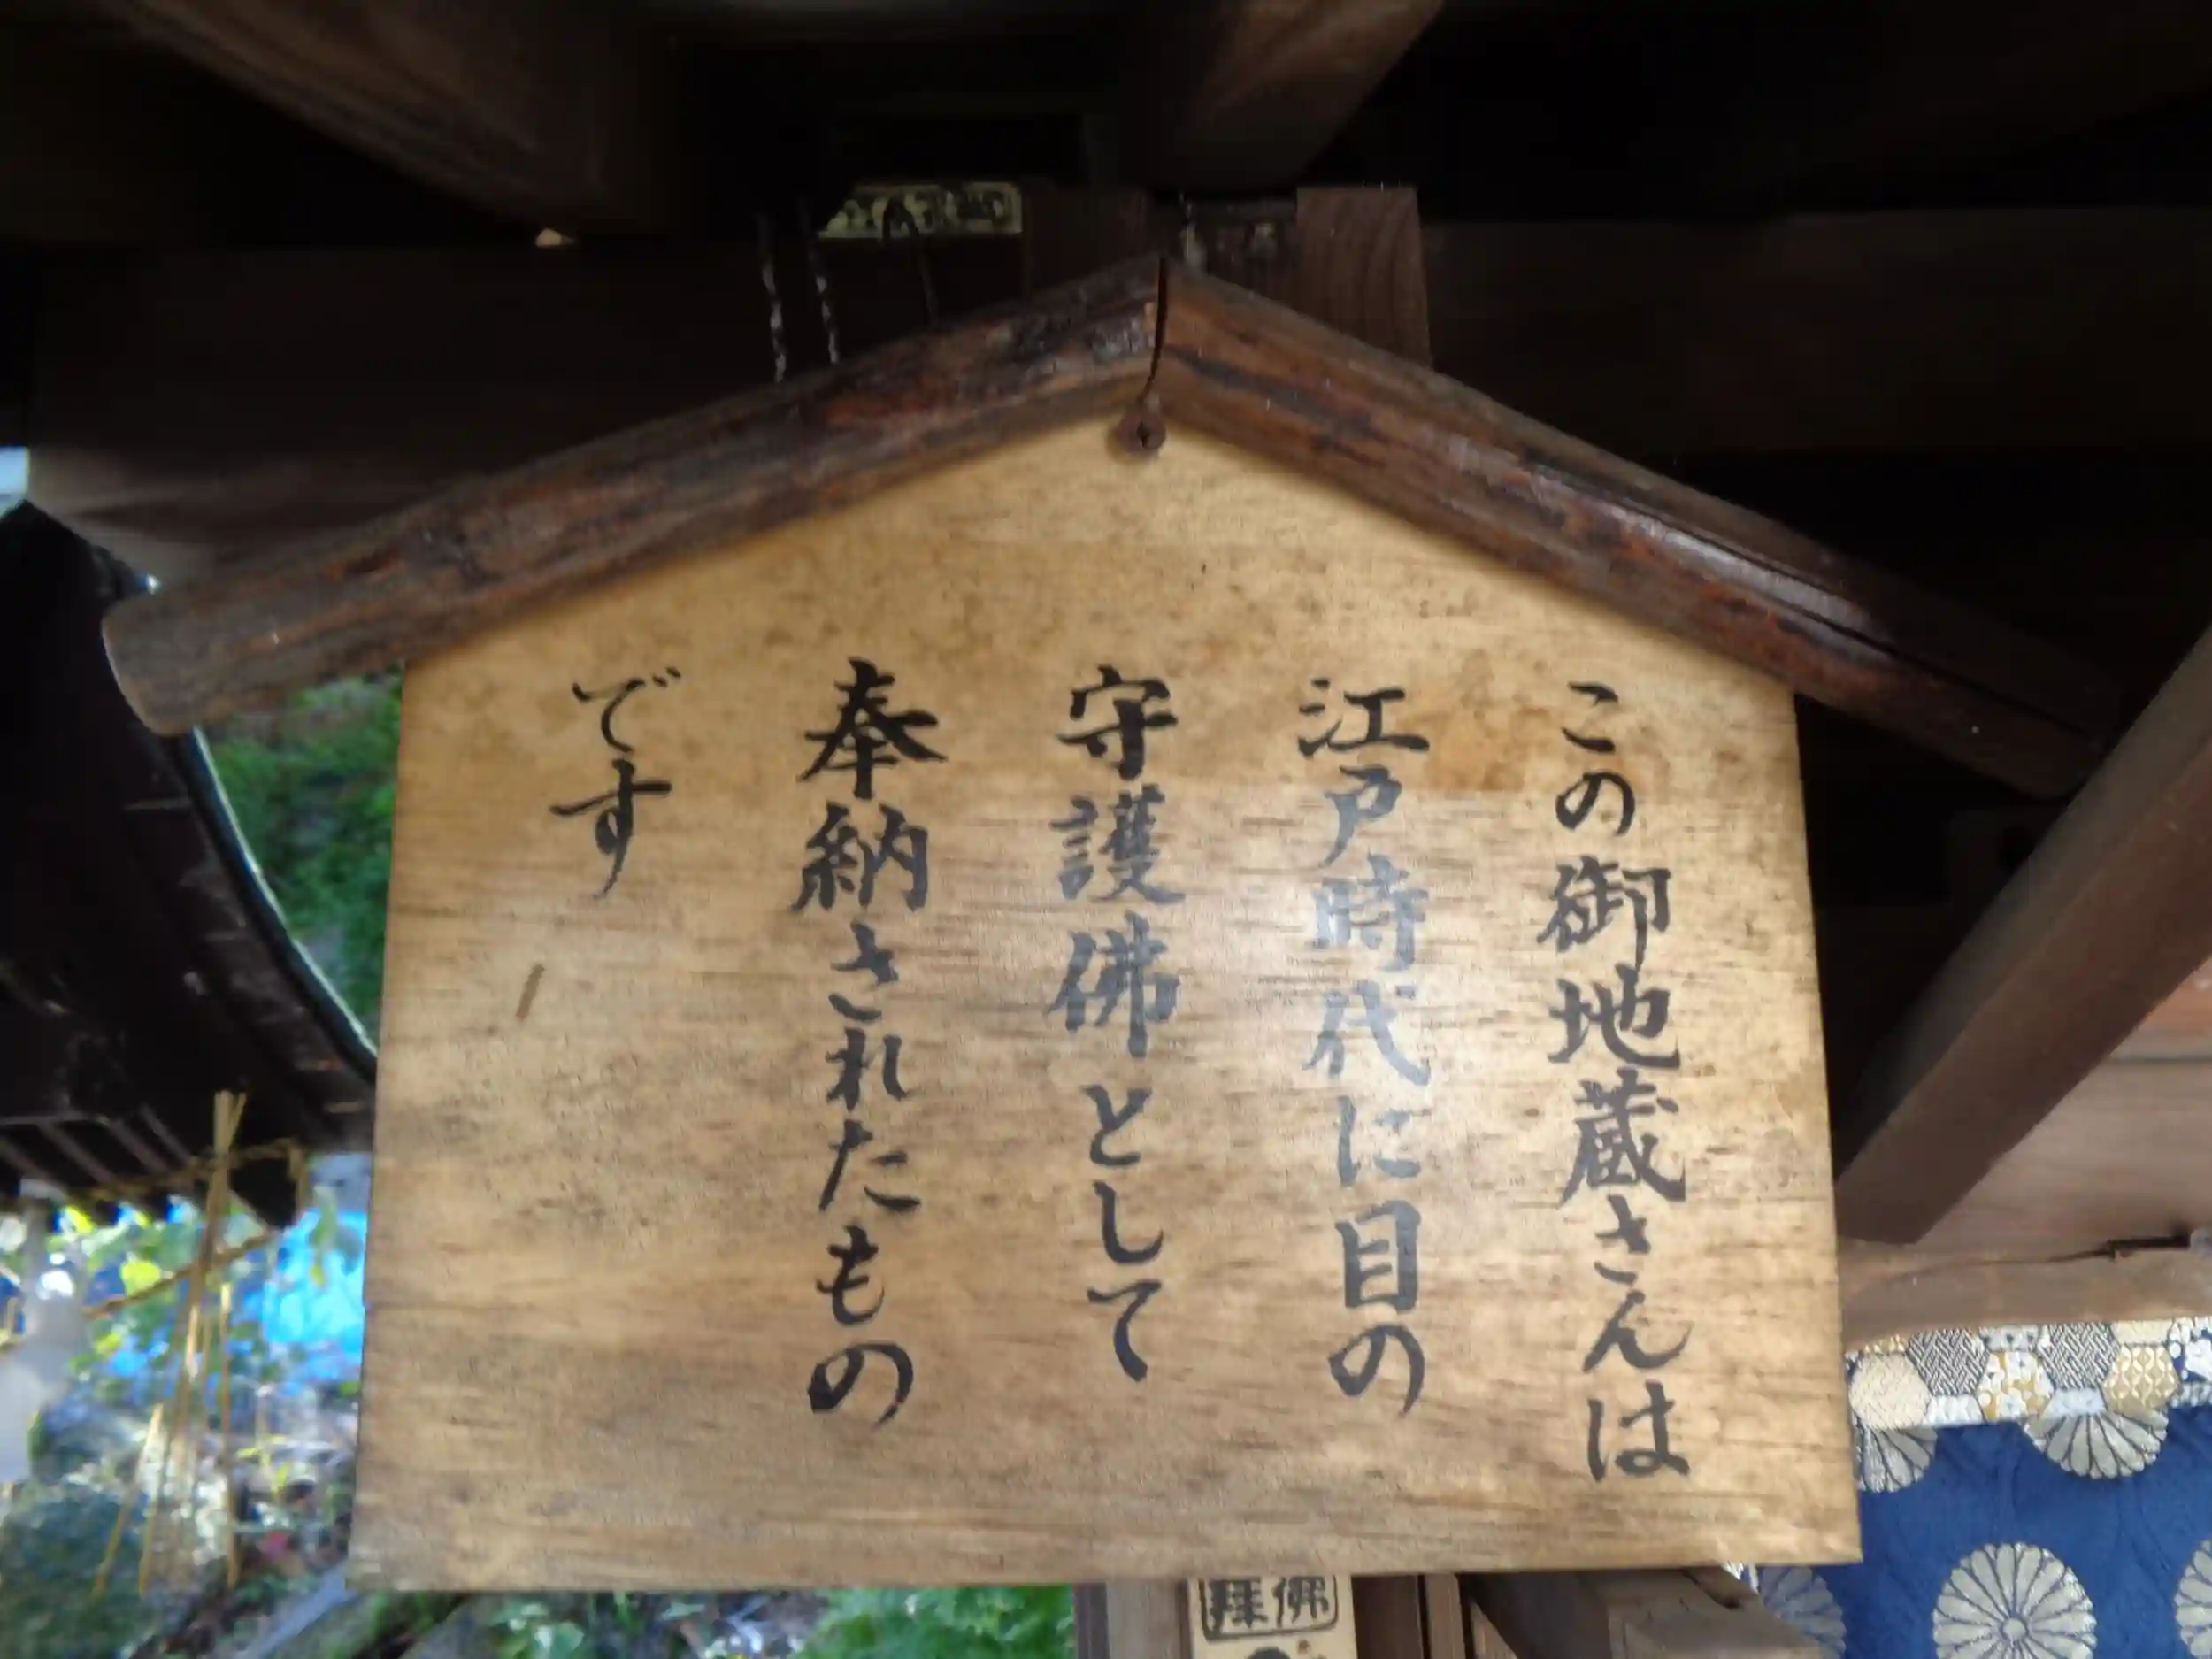 この御地蔵さんは
江戸時代に目の
守護佛として
奉納されたもの
です
佛拝